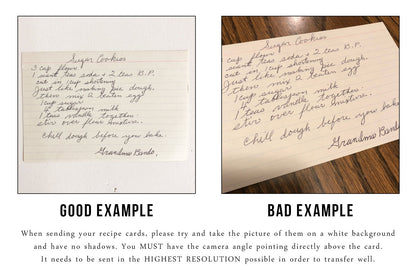 Sugar Cookies
3 cup flour
1 scant teas soda + 2 teas B.P.
cut in 1 cup shortening
Just like making pie dough.
then mix 2 beaten egg
1 cup sugar
4 tablespoon milk
1 teas vanilla together.
stir over flour mixture.
Chill dough before you bake.
Grandma
Sugar Cookies
3 cup flour
1 scant teas soda + 2 teas B.P.
cut in 1 cup shortening
Just like making pie dough.
then mix 2 beaten egg
1 cup sugar
4 tablespoon milk
1 teas vanilla together.
stir over flour mixture.
Chill dough before you bake
Grandma
GOOD EXAMPLE
BAD EXAMPLE
When sending your recipe cards, please try and take the picture of them on a white background
and have no shadows. You MUST have the camera angle pointing directly above the card.
It needs to be sent in the HIGHEST RESOLUTION possible in order to transfer well.